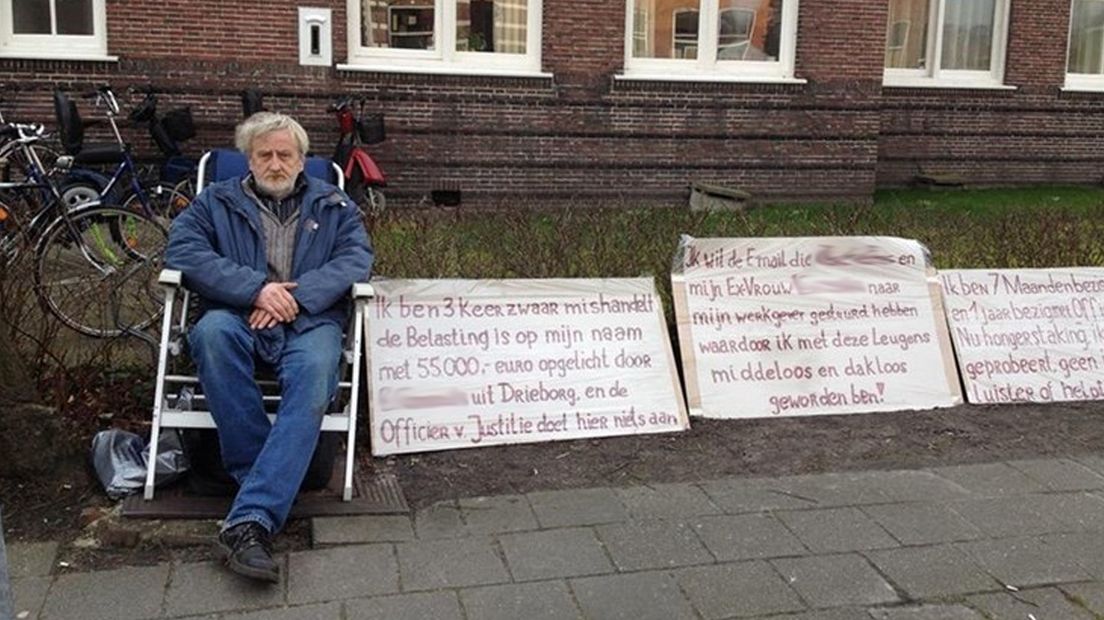 Ik ben 3 keer zwaar mishandelt
de Belasting is op mijn naam
met 55.000,- euro opgelicht door
uit Drieborg, en de
Officier v. Justitie doet hier niets aan
Ik wil de Email die en
mijn Ex-Vrouw naar
mijn werkgever gestuurd hebben
waardoor ik met deze Leugens
middeloos en dakloos
geworden ben!
Ik ben 7 Maanden
en 1 jaar bezig met
Nu hongerstaking, ik
geprobeert, geen
Luister of